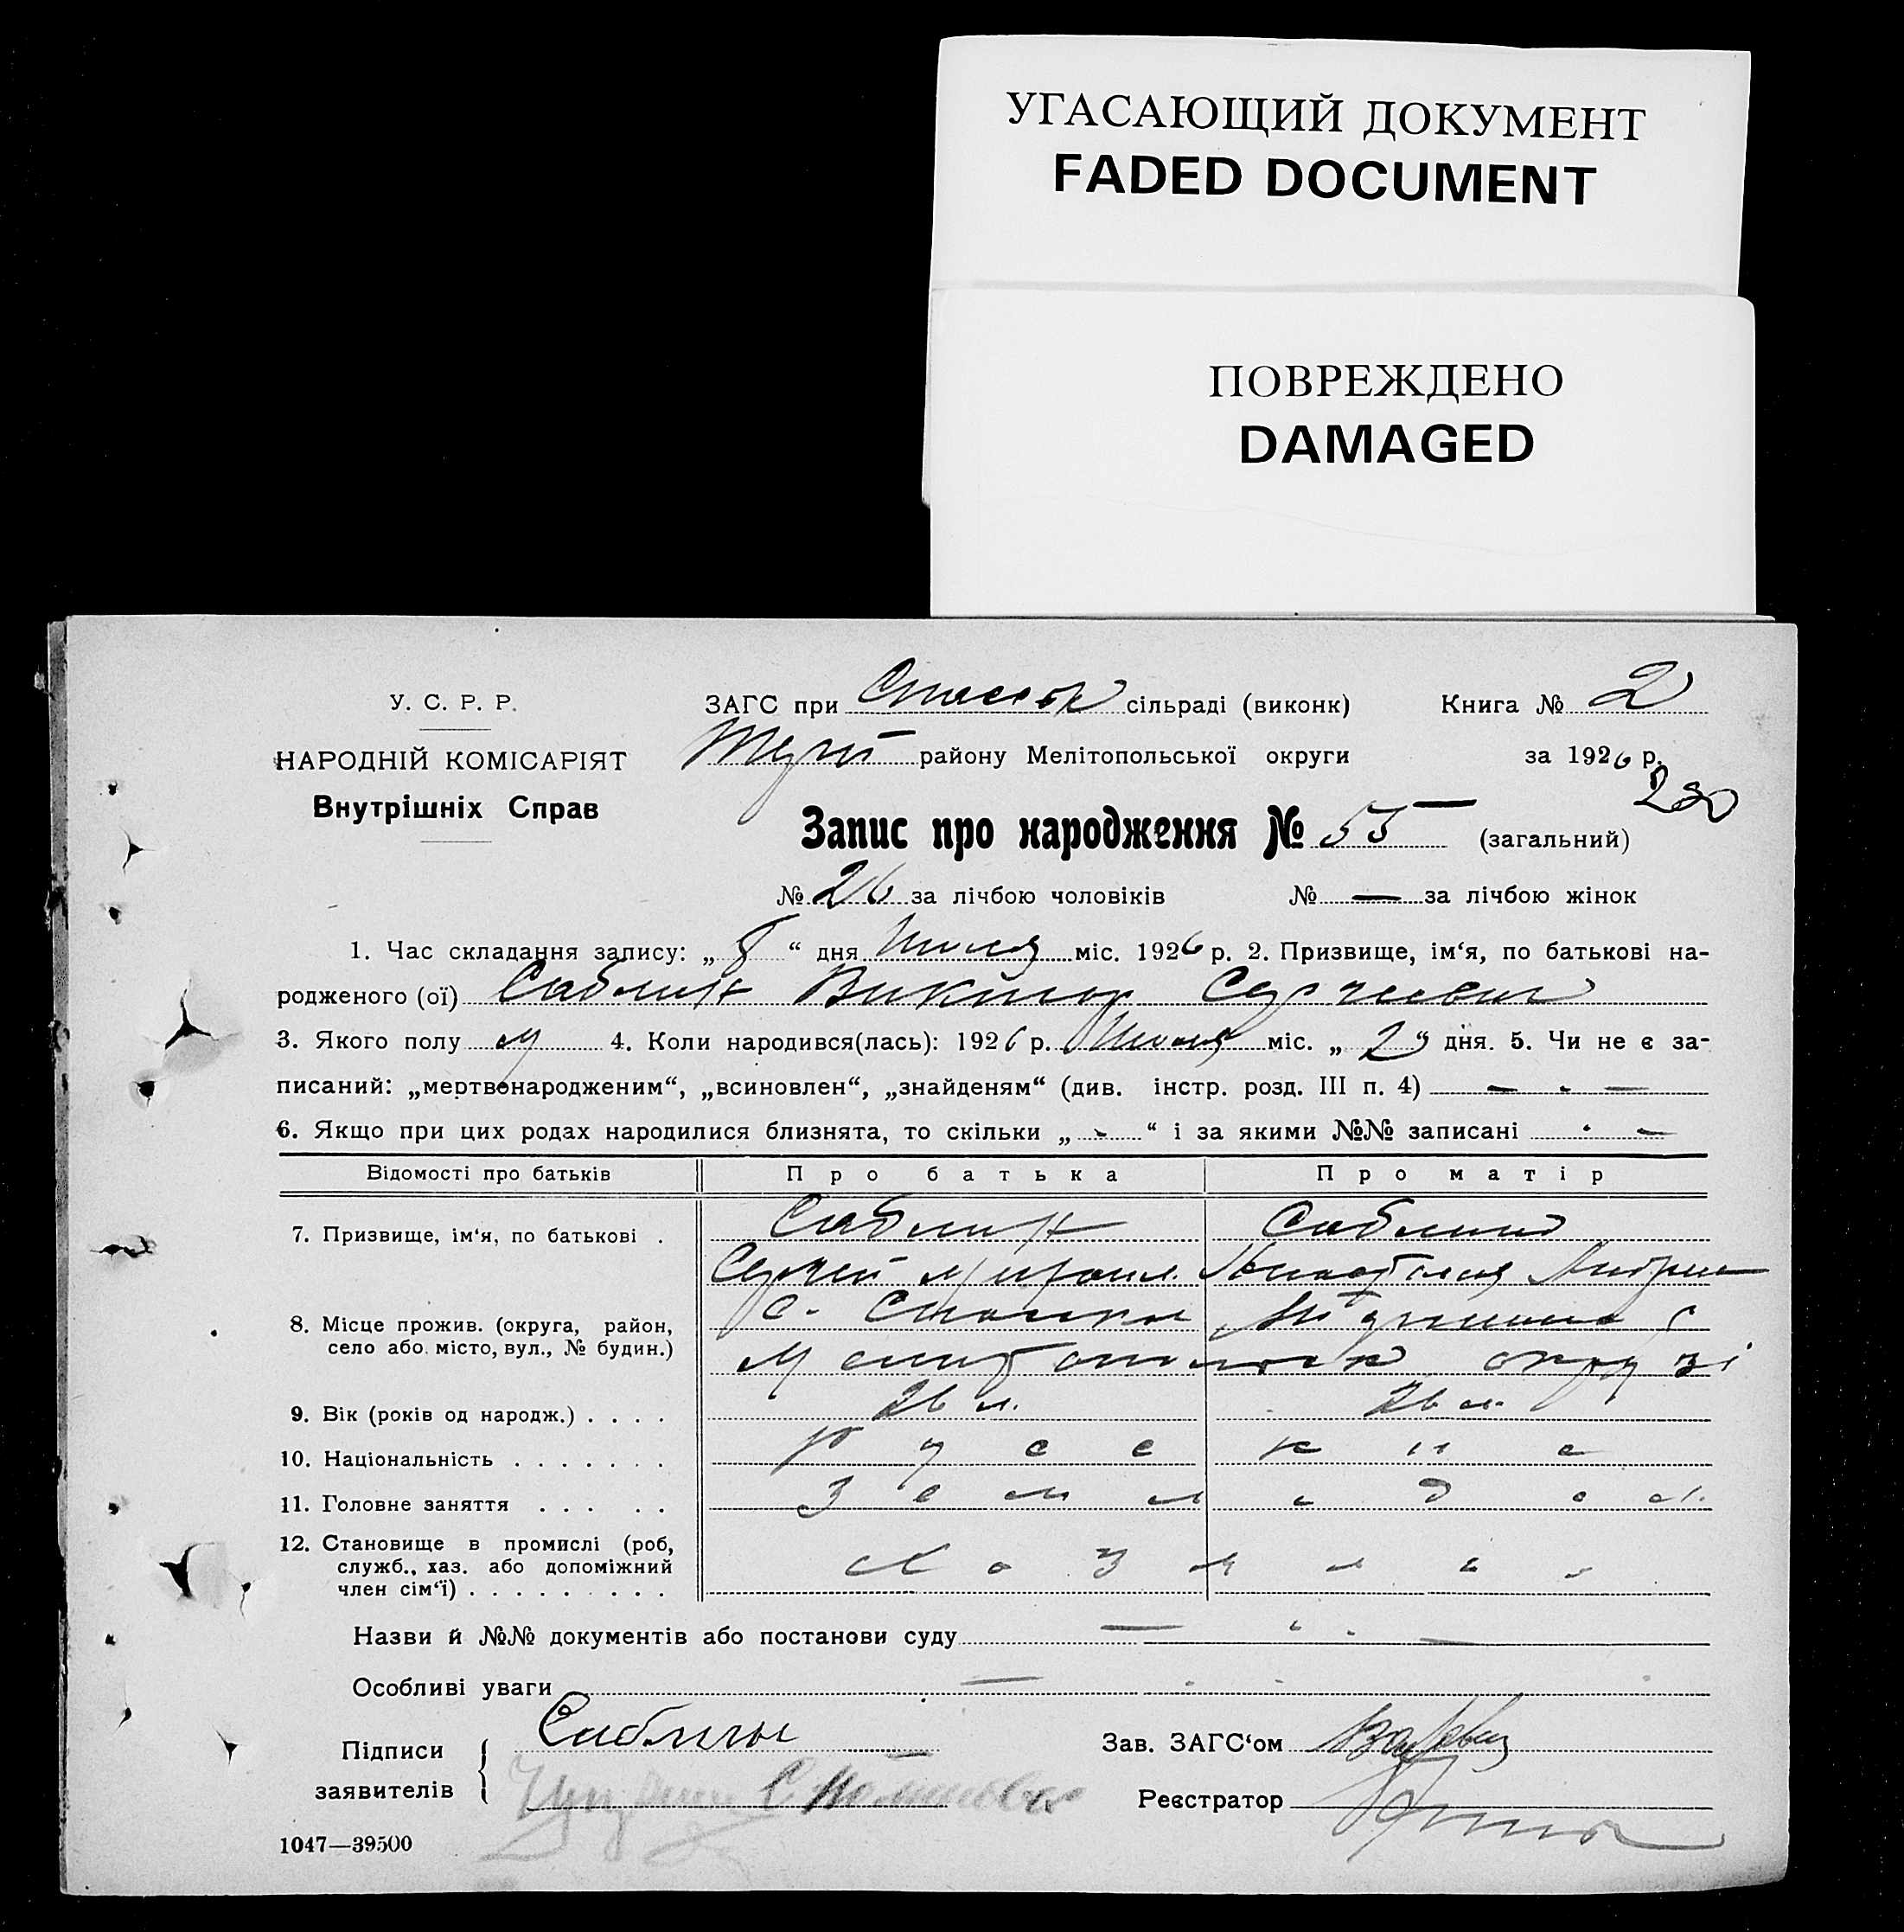 УГАСАЮЩИЙ ДОКУМЕНТ
FADED DOCUMENT
ПОВРЕЖДЕНО
DAMAGED
У. С. Р. Р.
НАРОДНІЙ КОМІСАРІЯТ
Внутрішніх Справ
ЗАГС при сільраді (виконк)
Книга № 2
району Мелітопольської округи
за 1926 р.
230
Запис про народження № 55 (загальний)
№ 26 за лічбою чоловіків № — за лічбою жінок
1. Час складання запису: „ 8 “ дня Июля міс. 1926 р. 2. Призвище, ім‘я, по батькові на-
родженого (ої) Саблин Виктор Сергеевич
3. Якого полу м 4. Коли народився(лась): 1926 р. Июля міс. „ 2 “ дня. 5. Чи не є за-
писаний: „мертвонародженим“, „всиновлен“, „знайденям“ (див. інстр. розд. III п. 4) —
6. Якщо при цих родах народилися близнята, то скільки „ - “ і за якими №№ записані —
Відомості про батьків Про батька Про матір
7. Призвище, ім‘я, по батькові . Саблин Саблина
Сергей
8. Місце прожив. (округа, район,
село або місто, вул., № будин.)
с.
Мелитопольск округи
9. Вік (років од народж.) . . . . 26 л. 26 л.
10. Національність . . . . . . . русские
11. Головне заняття . . . . . землядел.
12. Становище в промислі (роб,
служб., хаз. або допоміжний
член сім‘ї) . . . . . . . . .
Хозяева
Назви й №№ документів або постанови суду —
Особливі уваги —
Підписи
заявителів
Саблин
Зав. ЗАГС‘ом
Реєстратор
1047—39500